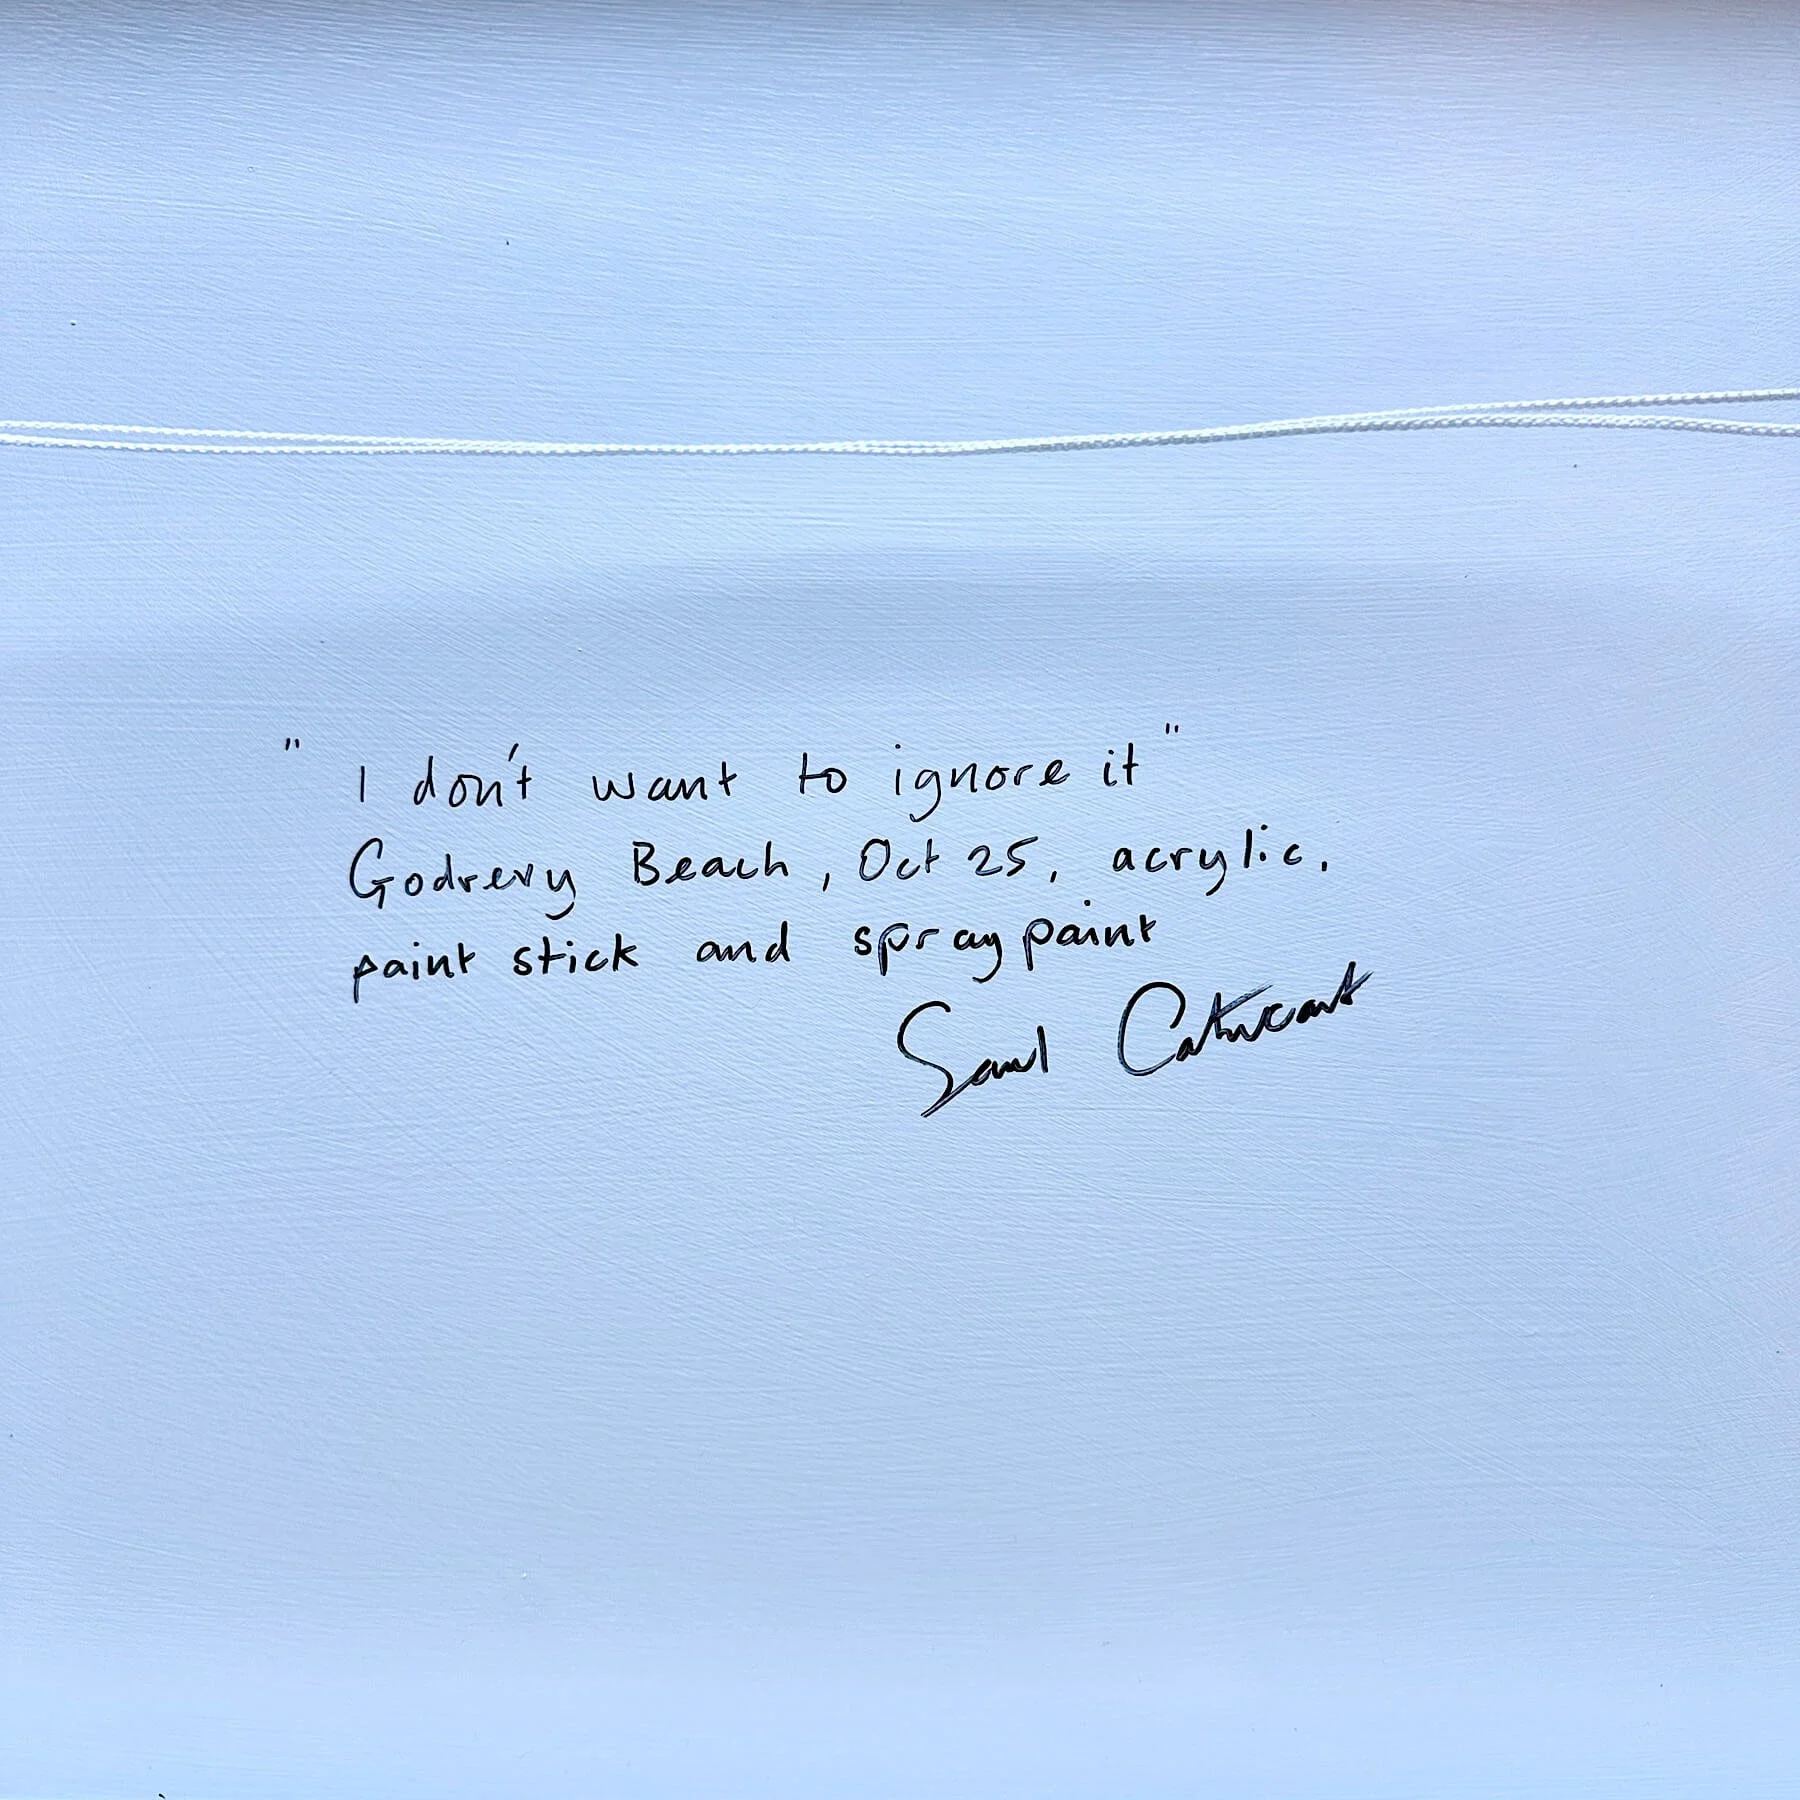 "I don't want to ignore it"
Godrevy Beach, Oct 25, acrylic,
paint stick and spray paint
Saul Cathcart